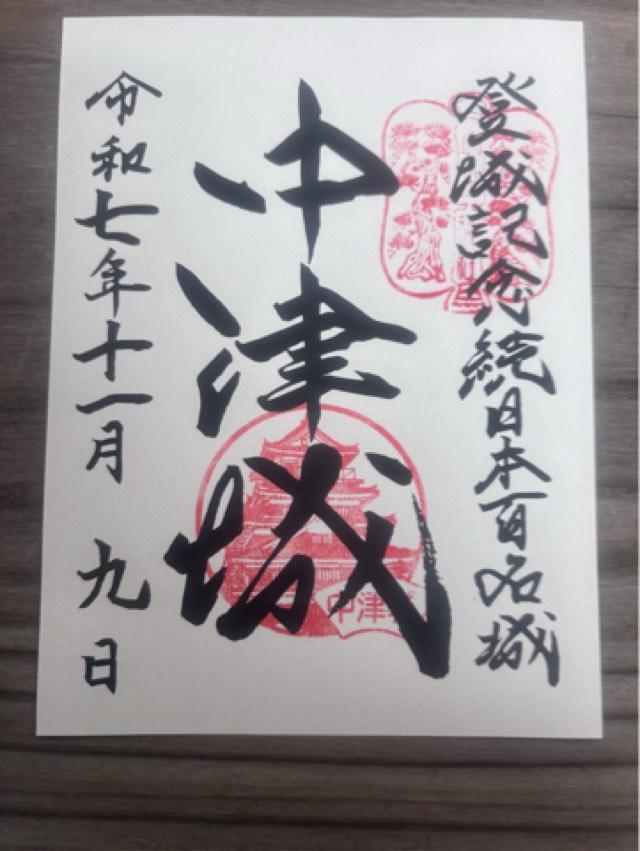 登城記念続日本百名城
中津城
令和七年十一月九日
中津